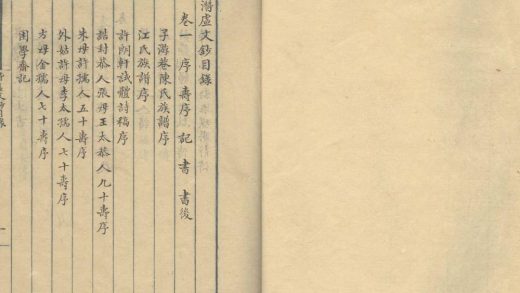 潛虛文鈔目錄
卷一 序 壽序 記 書 書後
子游巷陳氏族譜序
江氏族譜序
許朗軒試體詩稿序
誥封恭人張母王太恭人九十壽序
朱母許孺人五十壽序
外姑許母李太孺人七十壽序
方母金孺人七十壽序
困學齋記